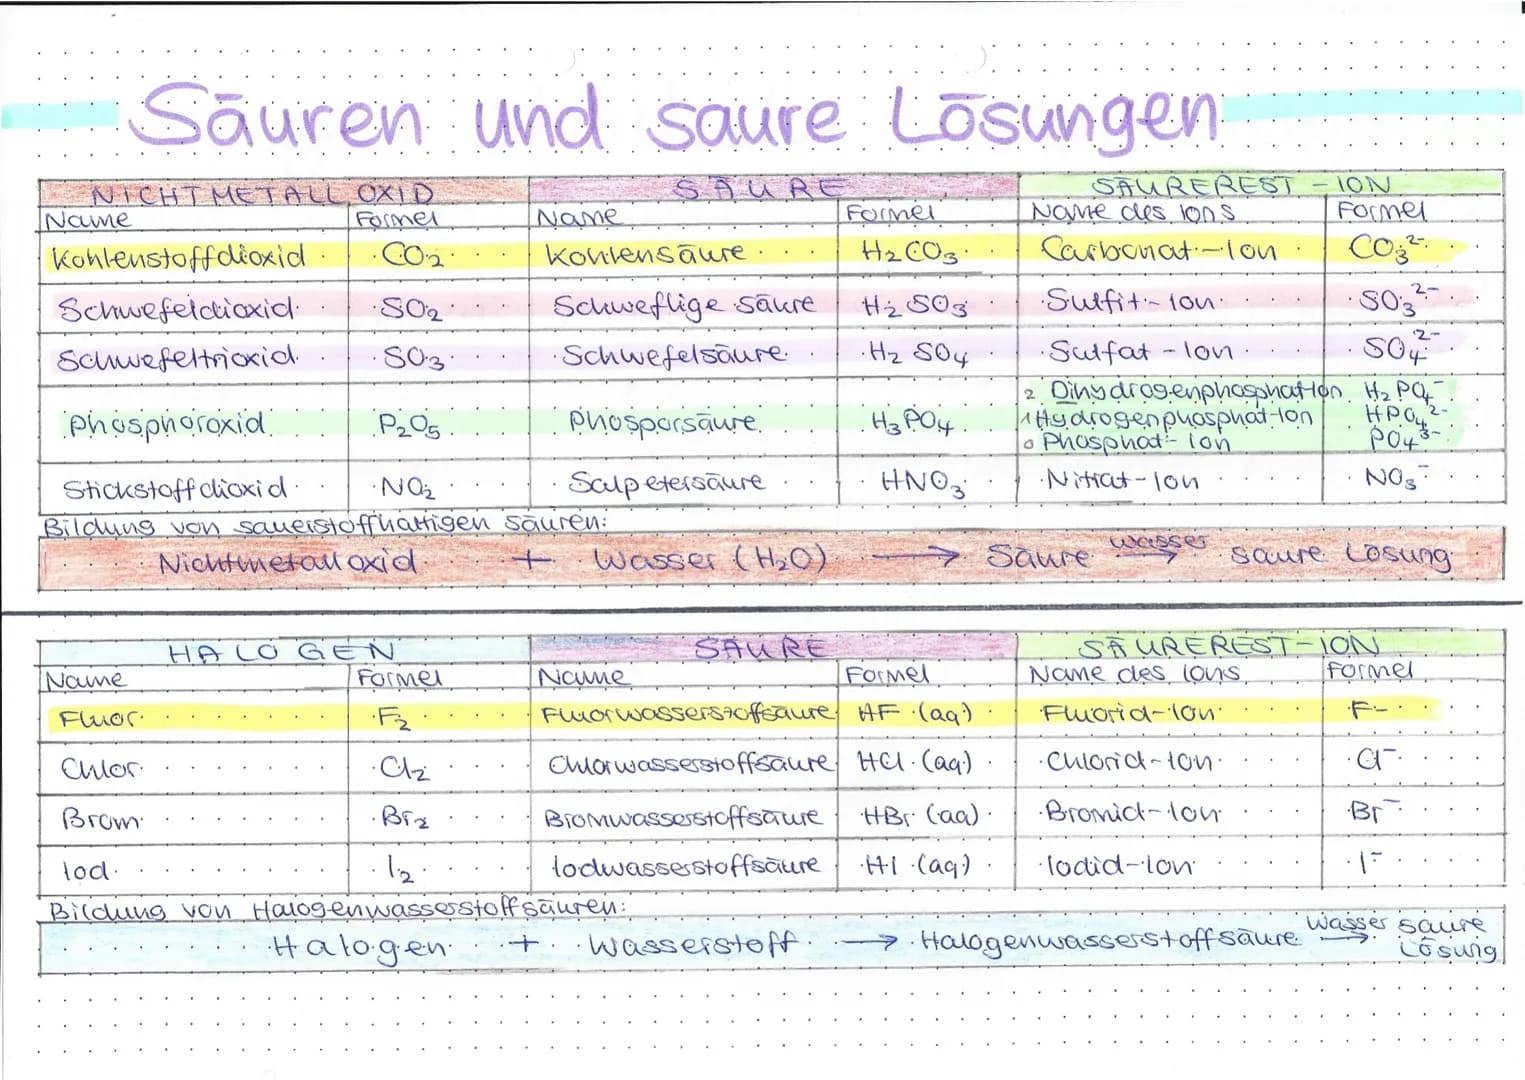 Säuren und saure Lösungen
NICHTMETALLOXID SÄURE SÄUREREST-ION
Name Formel Name Formel Name des Ions Formel
Kohlenstoffdioxid CO₂ Kohlensäure H₂CO₃ Carbonat-Ion CO₃²⁻
Schwefeldioxid SO₂ Schweflige Säure H₂SO₃ Sulfit-Ion SO₃²⁻
Schwefeltrioxid SO₃ Schwefelsäure H₂SO₄ Sulfat-Ion SO₄²⁻
2 Dihydrogenphosphation H₂PO₄⁻
Phosphoroxid P₂O₅ Phosporsäure H₃PO₄ 1 Hydrogenphosphat-Ion HPO₄²⁻
0 Phosphat-Ion PO₄³⁻
Stickstoffdioxid NO₂ Salpetersäure HNO₃ Nitrat-Ion NO₃⁻
Bildung von sauerstoffhaltigen Säuren:
Nichtmetalloxid + Wasser (H₂O) → Säure Wasser → saure Lösung
HALOGEN SÄURE SÄUREREST-ION
Name Formel Name Formel Name des Ions Formel
Fluor F₂ Fluorwasserstoffsäure HF (aq) Fluorid-Ion F-
Chlor Cl₂ Chlorwasserstoffsäure HCl (aq) Chlorid-Ion Cl⁻
Brom Br₂ Bromwasserstoffsäure HBr (aq) Bromid-Ion Br⁻
Iod I₂ Iodwasserstoffsäure HI (aq) Iodid-Ion I⁻
Bildung von Halogenwasserstoffsäuren:
Halogen + Wasserstoff → Halogenwasserstoffsäure Wasser → saure
Lösung